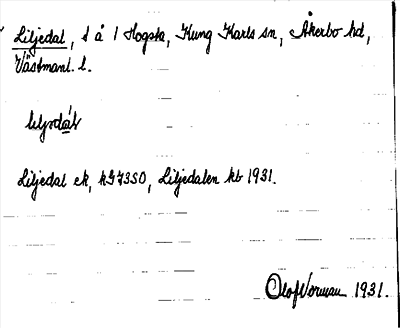 Liljedal, t å 1 Hogsta, Kung Karls sn, Åkerbo hd,
Västmanl. l.
Liljedal ek, kG7350, Liljedalen kb 1931.
Olof Norman 1931.